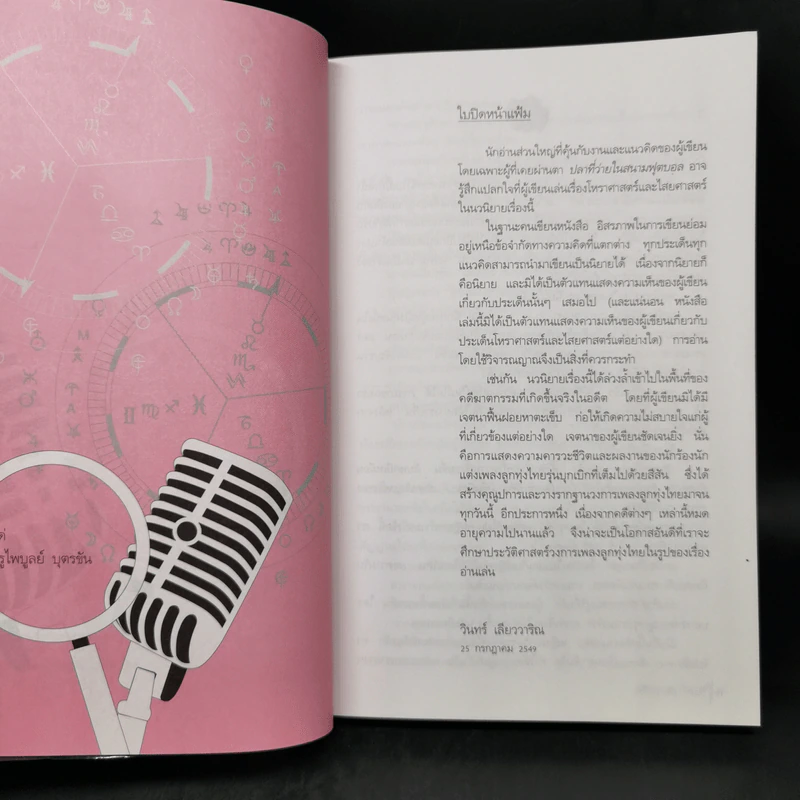 ต่
รูไพบูลย์ บุตรขัน
ใบปิดหน้าแฟ้ม
นักอ่านส่วนใหญ่ที่คุ้นกับงานและแนวคิดของผู้เขียน
โดยเฉพาะผู้ที่เคยผ่านตา ปลาที่ว่ายในสนามฟุตบอล อาจ
รู้สึกแปลกใจที่ผู้เขียนเล่นเรื่องโหราศาสตร์และไสยศาสตร์
ในนวนิยายเรื่องนี้
ในฐานะคนเขียนหนังสือ อิสรภาพในการเขียนย่อม
อยู่เหนือข้อจำกัดทางความคิดที่แตกต่าง ทุกประเด็นทุก
แนวคิดสามารถนำมาเขียนเป็นนิยายได้ เนื่องจากนิยายก็
คือนิยาย และมิได้เป็นตัวแทนแสดงความเห็นของผู้เขียน
เกี่ยวกับประเด็นนั้นๆ เสมอไป (และแน่นอน หนังสือ
เล่มนี้มิได้เป็นตัวแทนแสดงความเห็นของผู้เขียนเกี่ยวกับ
ประเด็นโหราศาสตร์และไสยศาสตร์แต่อย่างใด) การอ่าน
โดยใช้วิจารณญาณจึงเป็นสิ่งที่ควรกระทำ
เช่นกัน นวนิยายเรื่องนี้ได้ล่วงล้ำเข้าไปในพื้นที่ของ
คดีฆาตกรรมที่เกิดขึ้นจริงในอดีต โดยที่ผู้เขียนมิได้มี
เจตนาฟื้นฝอยหาตะเข็บ ก่อให้เกิดความไม่สบายใจแก่ผู้
ที่เกี่ยวข้องแต่อย่างใด เจตนาของผู้เขียนชัดเจนยิ่ง นั่น
คือการแสดงความคารวะชีวิตและผลงานของนักร้องนัก
แต่งเพลงลูกทุ่งไทยรุ่นบุกเบิกที่เต็มไปด้วยสีสัน ซึ่งได้
สร้างคุณูปการและวางรากฐานวงการเพลงลูกทุ่งไทยมาจน
ทุกวันนี้ อีกประการหนึ่ง เนื่องจากคดีต่างๆ เหล่านี้หมด
อายุความไปนานแล้ว จึงน่าจะเป็นโอกาสอันดีที่เราจะ
ศึกษาประวัติศาสตร์วงการเพลงลูกทุ่งไทยในรูปของเรื่อง
อ่านเล่น
วินทร์ เลียววาริณ
25 กรกฎาคม 2549